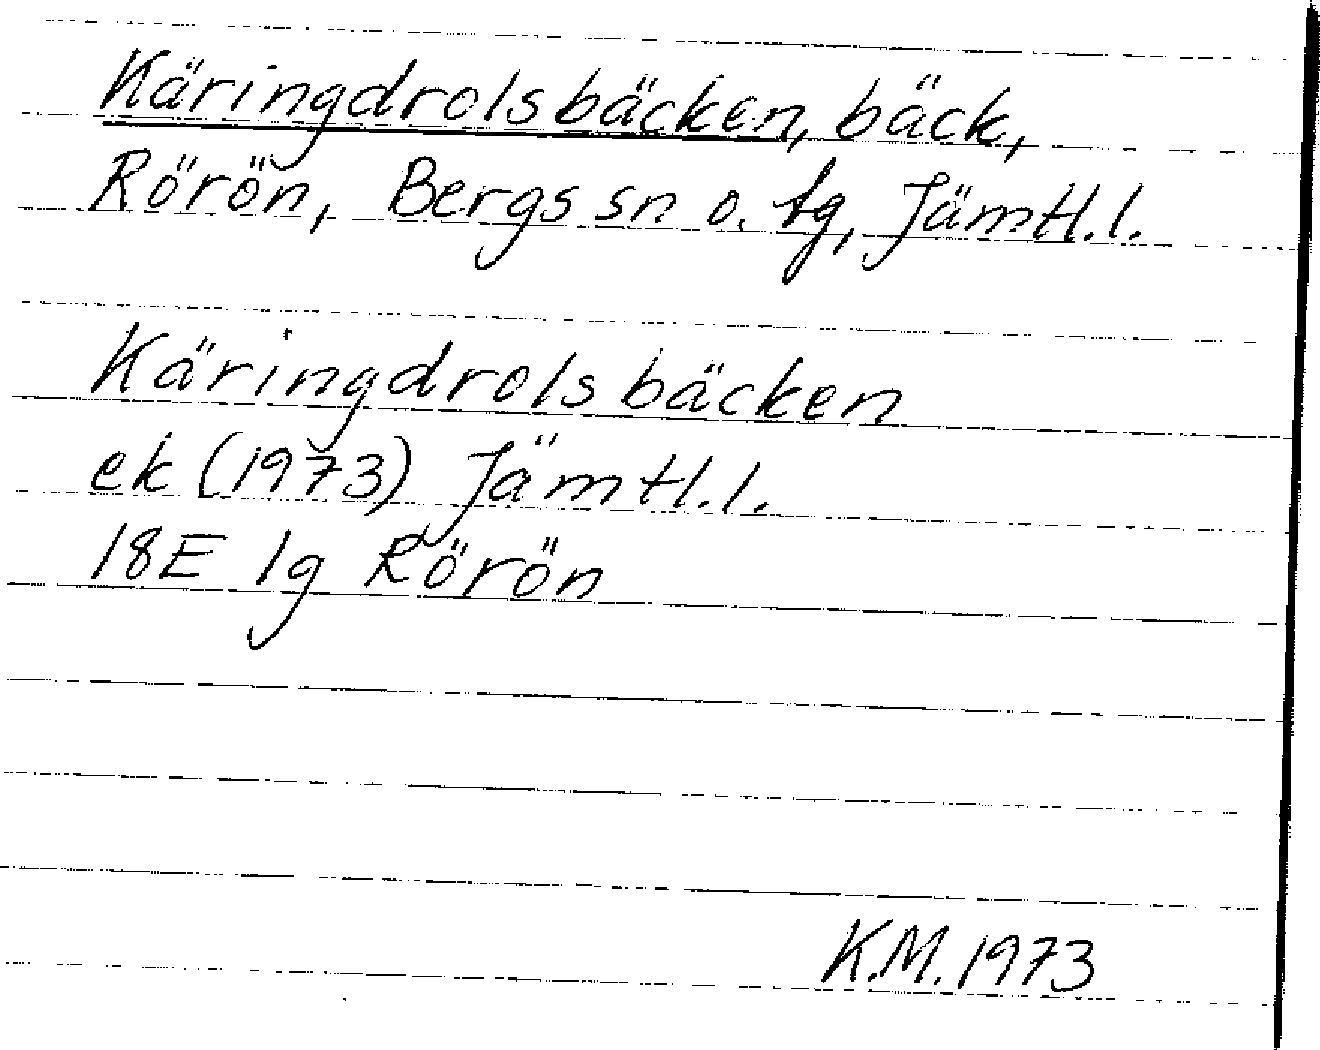 Käringdrolsbäcken, bäck,
Rörön, Bergs sn o. tg, Jämtl.l.
Käringdrolsbäcken
ek (1973) Jämtl.l.
18E 1g Rörön
K.M. 1973